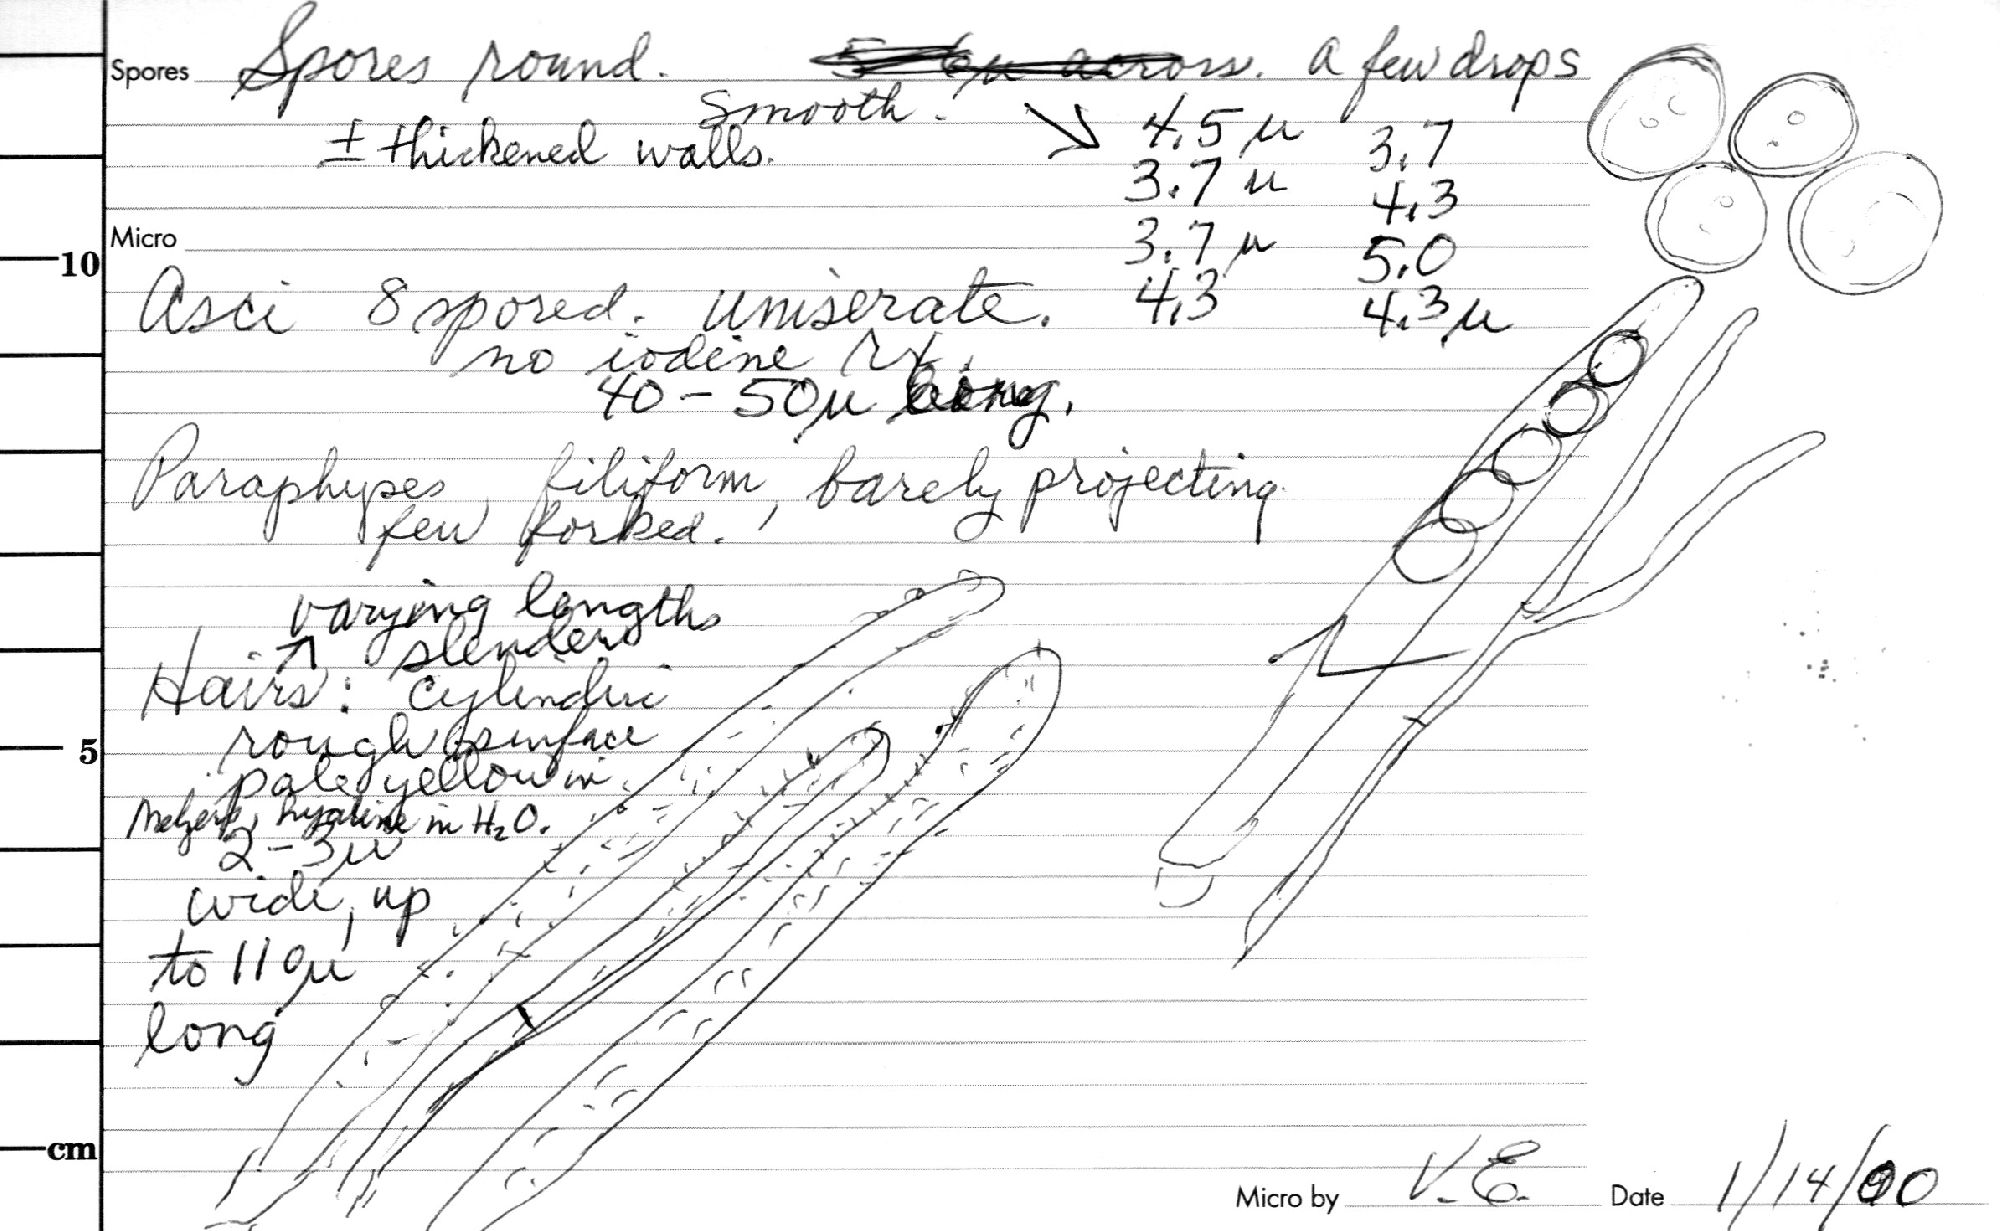 Spores Spores round. A few drops
Smooth.
± thickened walls.
4.5 µ 3.7
3.7 µ 4.3
3.7 µ 5.0
4.3 4.3 µ
Micro
10
Asci 8 spored. uniserate.
no iodine rx.
40 - 50µ long.
Paraphyses, filiform, barely projecting
few forked.
varying lengths
slender
Hairs: Cylindric
rough surface
5
pale yellow in
Melzers, hyaline in H₂O.
2-3µ
wide, up
to 110µ
long
cm
Micro by V.E. Date 1/14/00